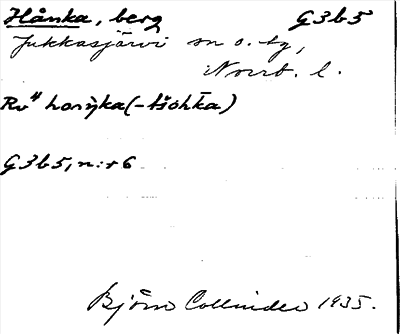 Hånka, berg G3b5
Jukkasjärvi sn o. tg,
Norrb. l.
Rv4 horŋka(-tšohka)
G3b5, n:r 6
Björn Collinder 1935.